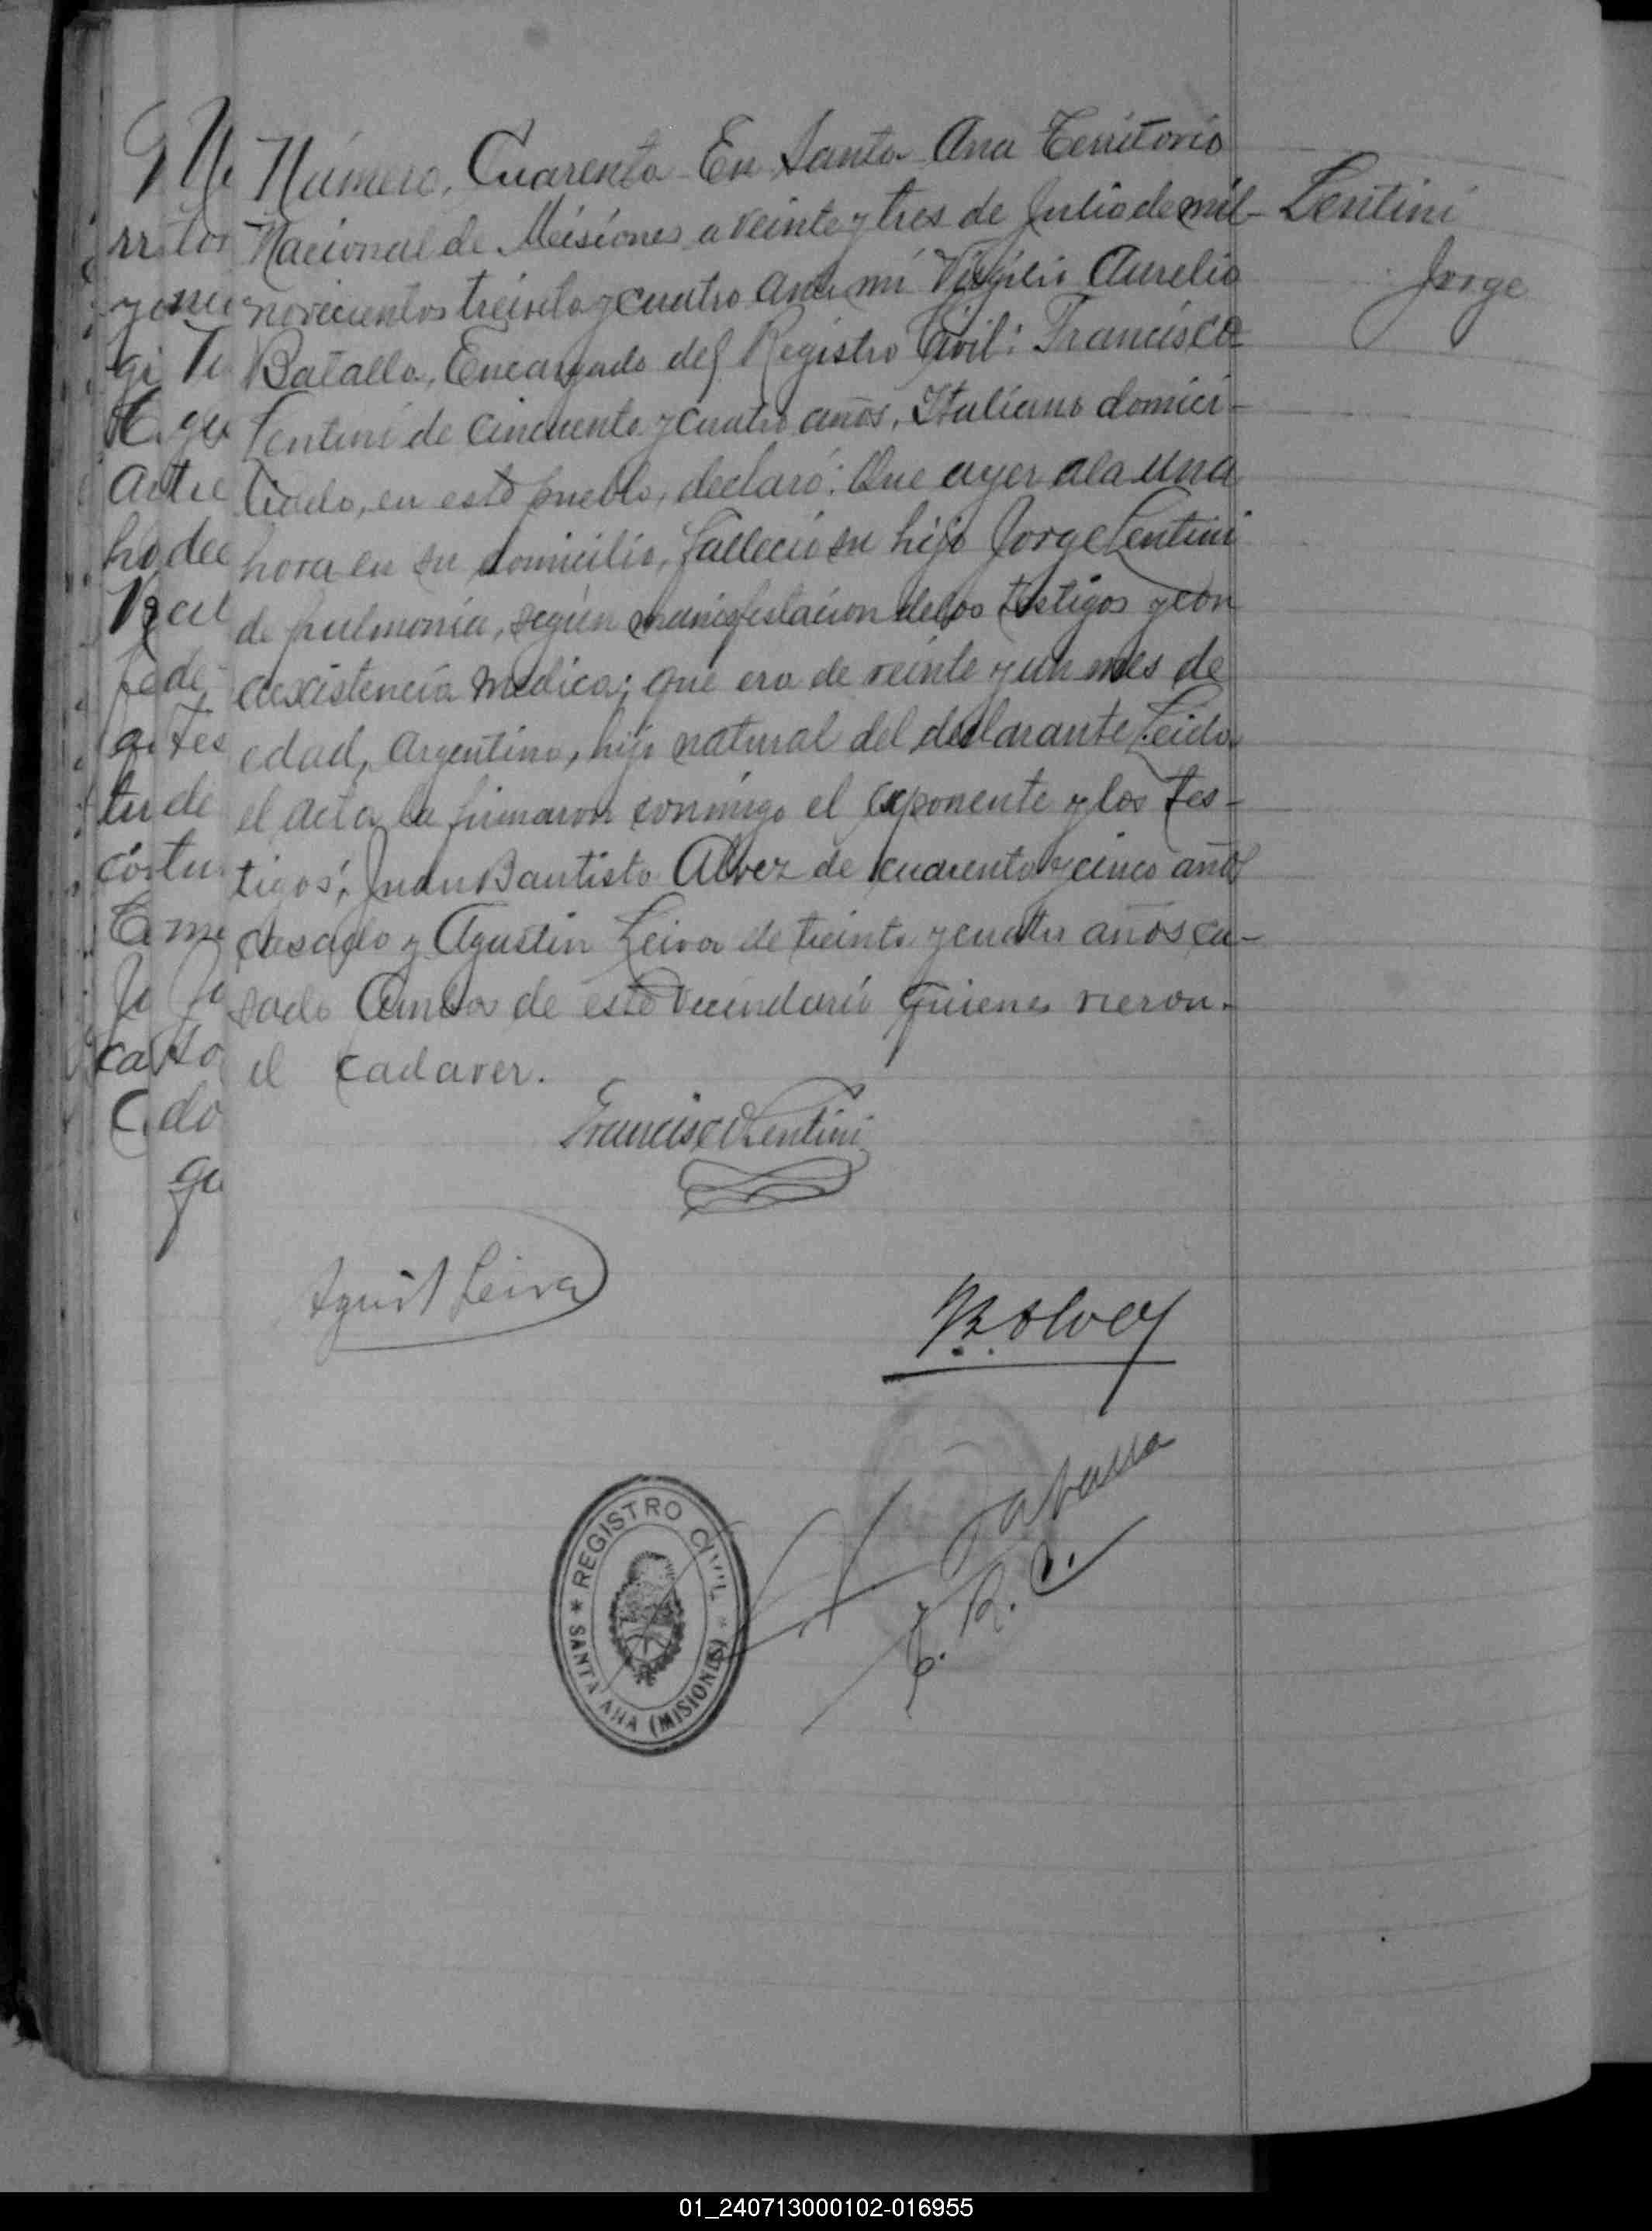 Número, Cuarenta En Santa Ana Territorio
Nacional de Misiones a veinte y tres de Julio de mil
novecientos treinta y cuatro ante mi Virgilio Aurelio
Batalla, Encargado del Registro Civil: Francisco
Lentini de cincuenta y cuatro años, Italiano domici-
liado, en este pueblo, declaró: Que ayer a la una
hora en su domicilio, fallecio su hijo Jorge Lentini
de pulmonia, según manifestacion de los testigos y con
medica; que era de veinte y un mes de
edad, Argentino, hijo natural del declarante Leida
el acta la firmaron conmigo el exponente y los tes-
tigos; Juan Bautista Alvez de cuarenta y cinco años
casado y Agustin Leiva de treinta y cuatro años ca-
sado Ambos de este vecindario quienes vieron
el cadaver.
Lentini
Jorge
Francisco Lentini
Agust Leiva
B. Alvez
Batalla
E. R. C.
REGISTRO CIVIL
SANTA ANA (MISIONES)
01_240713000102-016955